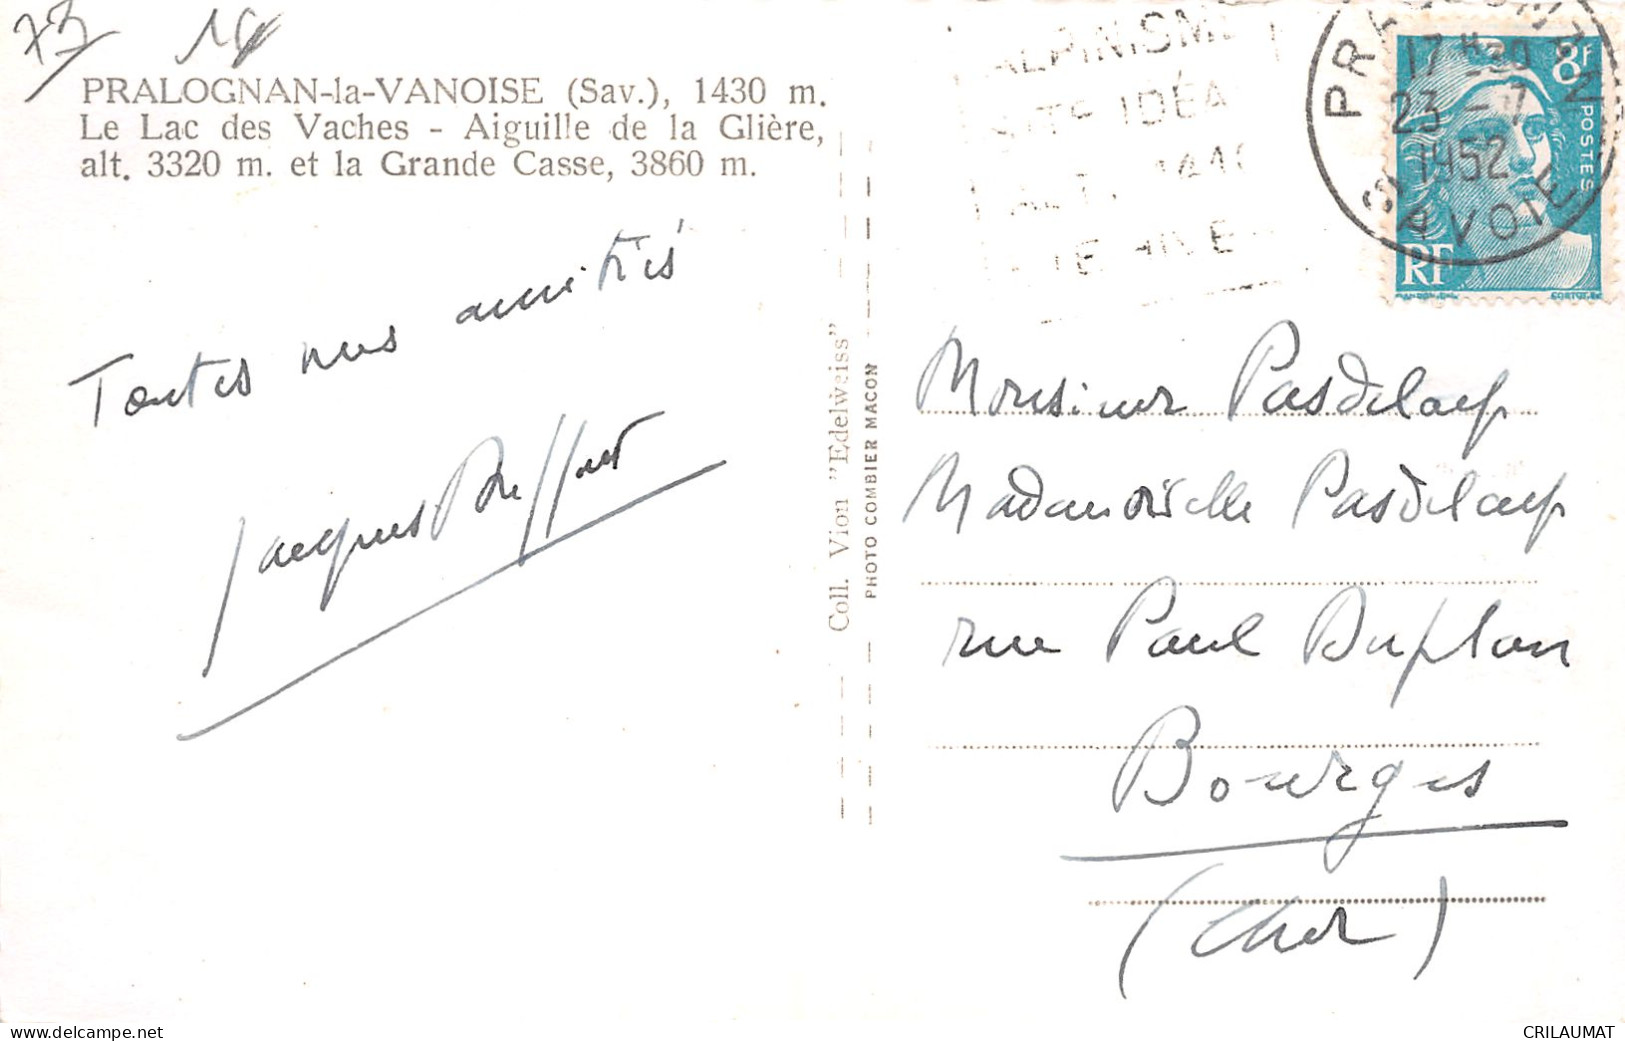 73
PRALOGNAN-la-VANOISE (Sav.), 1430 m.
Le Lac des Vaches - Aiguille de la Glière,
alt. 3320 m. et la Grande Casse, 3860 m.
Toutes nos amitiés
Jacques
Coll. Vion "Edelweiss"
PHOTO COMBIER MACON
ALPINISME
17 H 30
23 - 7
1952
SAVOIE
8f
POSTES
RF
Monsieur Pasdeloup
Mademoiselle Pasdeloup
rue Paul Duplan
Bourges
(Cher)
www.delcampe.net
CRILAUMAT